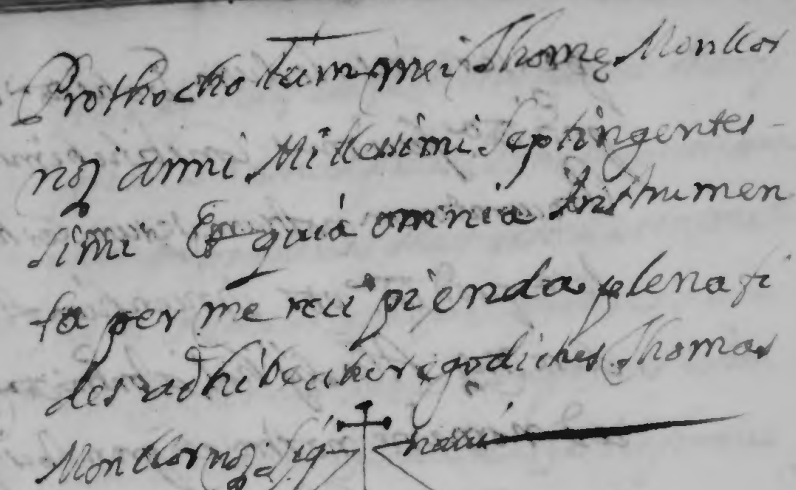 Prothochollum mei Thomę Monllor
noẓ anni Millessimi septingentes-
simi Et quiá omnia Instrumen
ta per me recipienda plena fi
des adhibeatur ego dictus Thomas
Monllor noẓ. sig navi